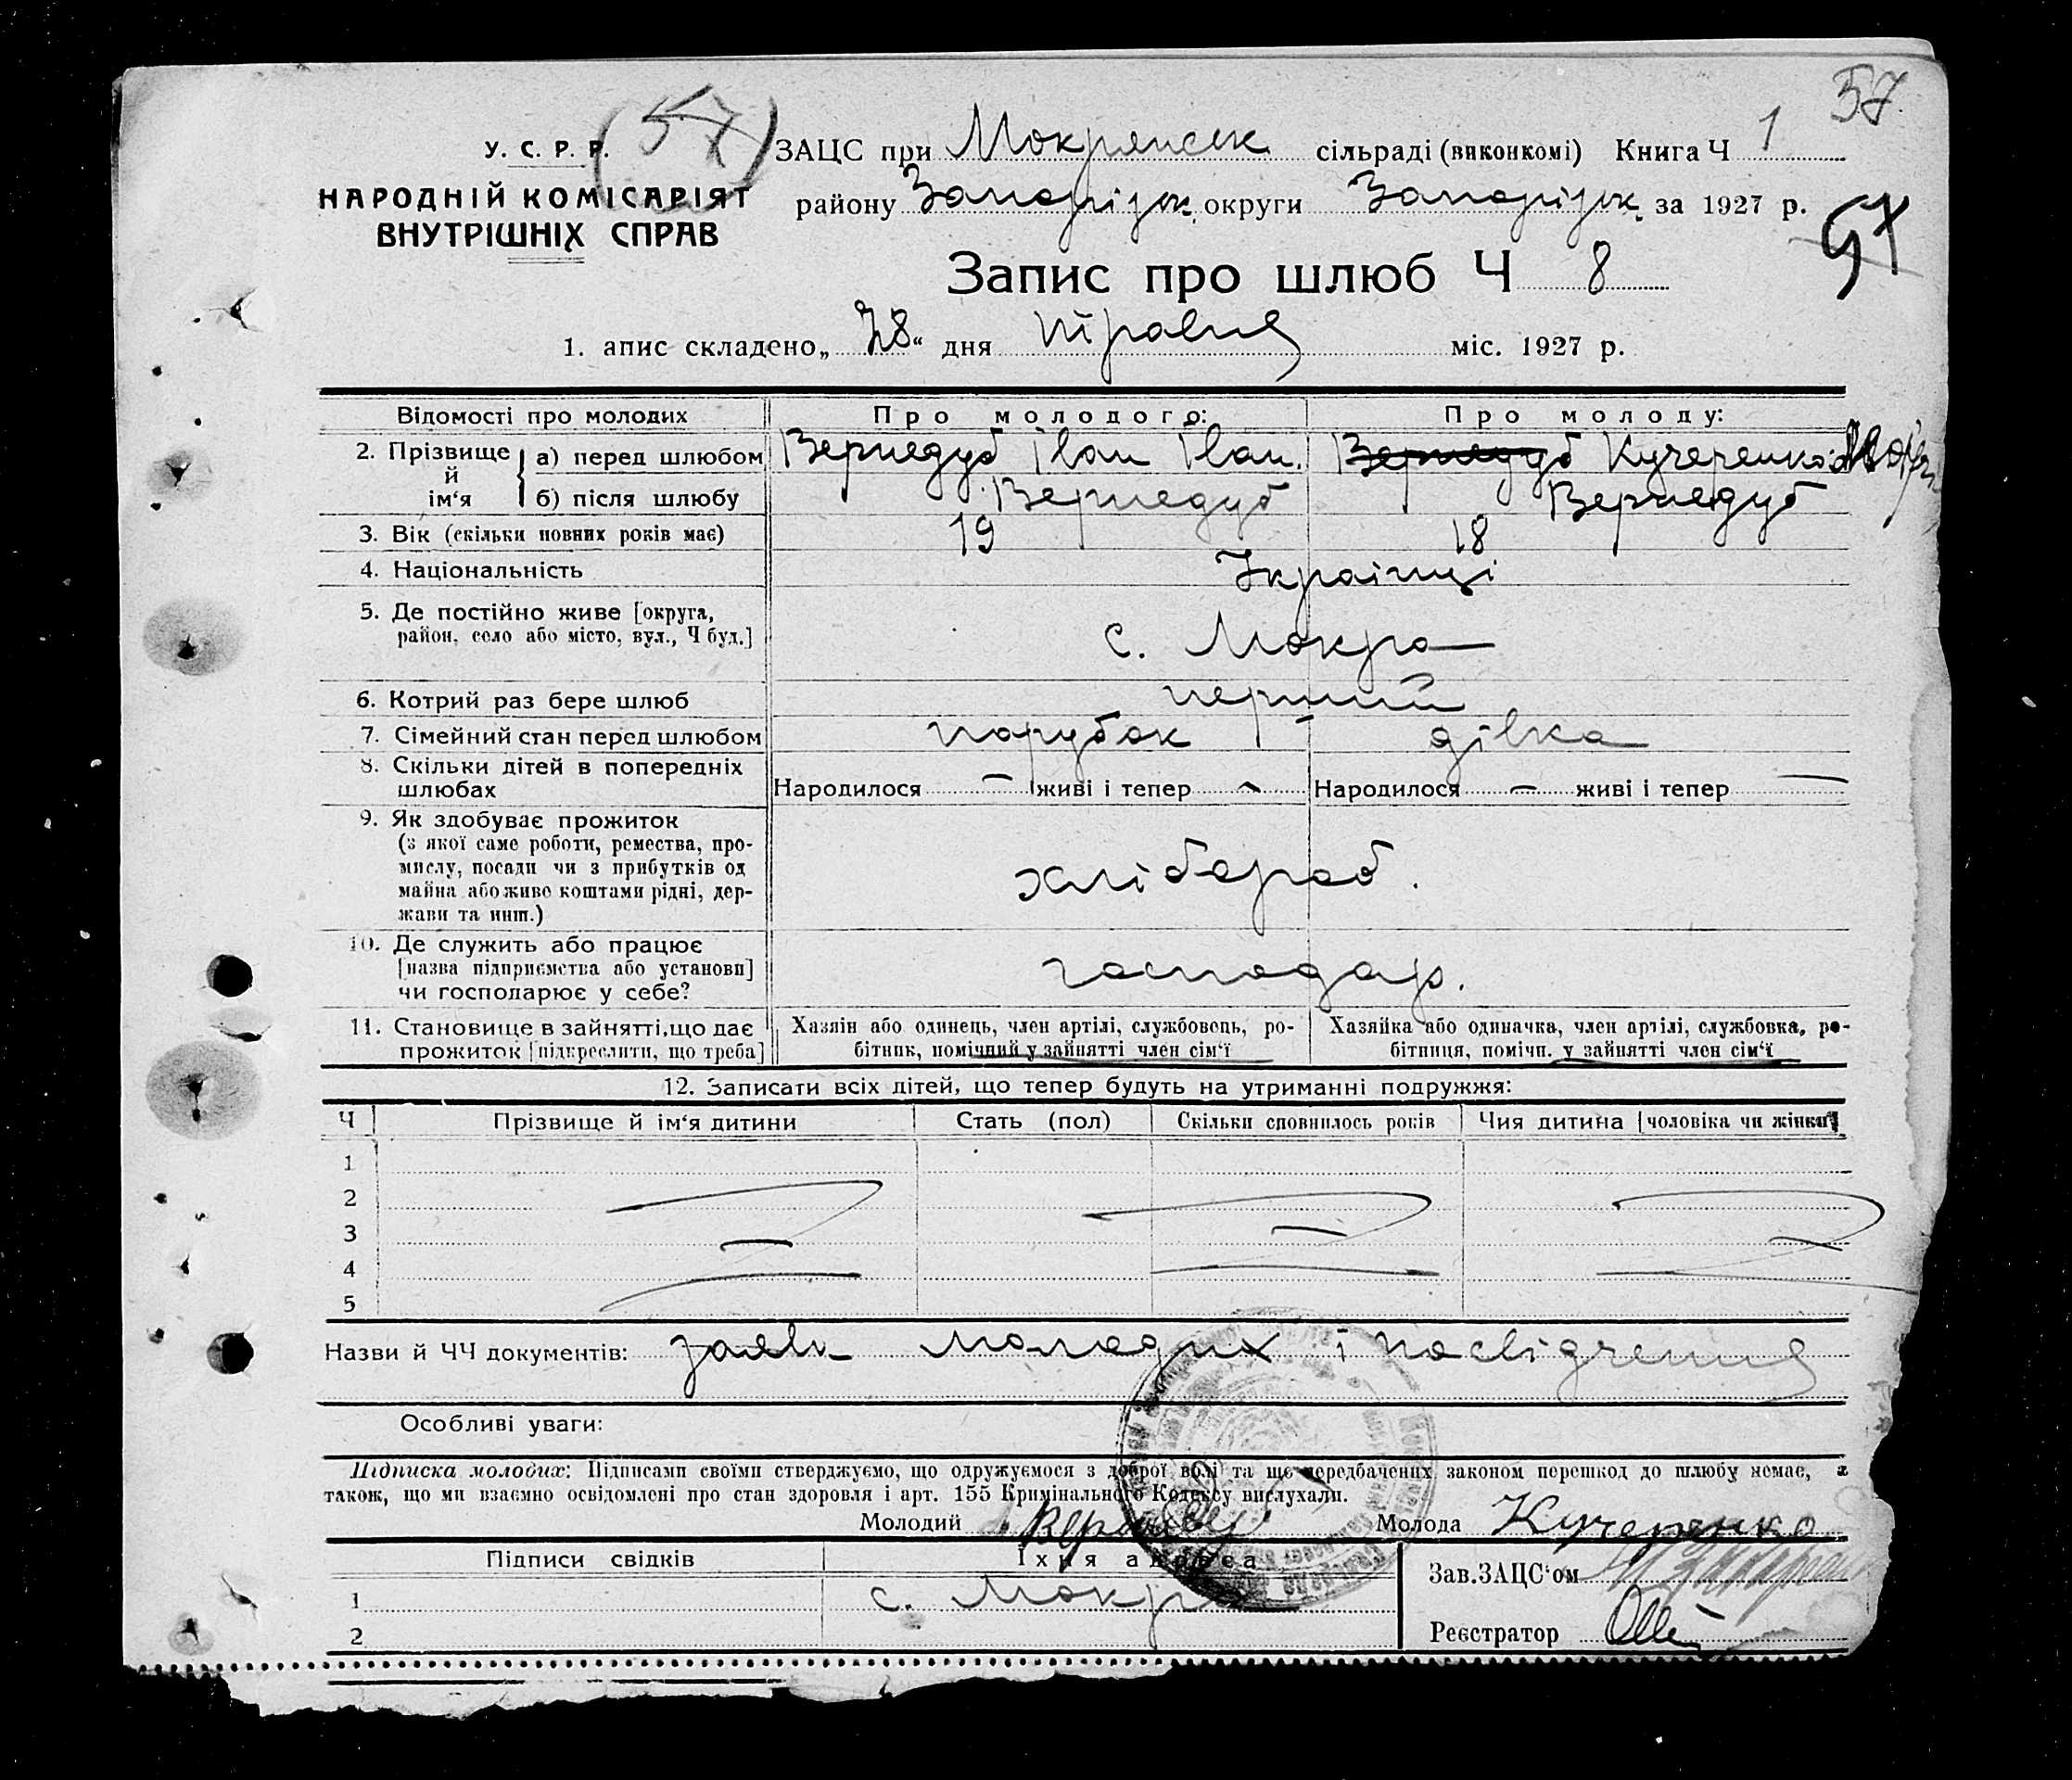 57.
(57)
У. С. Р. Р.
НАРОДНІЙ КОМІСАРІЯТ
ВНУТРІШНІХ СПРАВ
ЗАЦС при Мокрянськ сільраді (виконкомі) Книга Ч 1
району Запоріжк. округи Запоріжк. за 1927 р.
57
Запис про шлюб Ч 8
1. апис складено „28“ дня травня міс. 1927 р.
Відомості про молодих Про молодого: Про молоду:
2. Прізвище й ім‘я а) перед шлюбом Вернедуб Іван Іван. Вернедуб Кучеренко
б) після шлюбу Вернедуб Вернедуб
3. Вік (скільки повних років має) 19 18
4. Національність Українці
5. Де постійно живе [округа,
район, село або місто, вул., Ч буд.] с. Мокра
6. Котрий раз бере шлюб перший
7. Сімейний стан перед шлюбом парубок дівка
8. Скільки дітей в попередніх
шлюбах Народилося — живі і тепер — Народилося — живі і тепер —
9. Як здобуває прожиток
(з якої саме роботи, ремества, про-
мислу, посади чи з прибутків од
майна або живе коштами рідні, дер-
жави та инш.) хлібороб.
10. Де служить або працює
[назва підприємства або установи]
чи господарює у себе? господар.
11. Становище в зайнятті, що дає
прожиток [підкреслити, що треба]
Хазяін або одинець, член артілі, службовець, ро-
бітник, помічний у зайнятті член сім‘ї
Хазяйка або одиначка, член артілі, службовка, ро-
бітниця, помічн. у зайнятті член сім‘ї
12. Записати всіх дітей, що тепер будуть на утриманні подружжя:
Ч Прізвище й ім‘я дитини Стать (пол) Скільки сповнилось років Чия дитина [чоловіка чи жінки]
1
2
3
4
5
Назви й ЧЧ документів: заяви молодих і посвідчення
Особливі уваги:
Підписка молодих: Підписами своїми стверджуємо, що одружуємося з доброї волі та що передбачених законом перешкод до шлюбу немає, а
також, що ми взаємно освідомлені про стан здоровля і арт. 155 Кримінального Кодексу вислухали.
Молодий Молода Кучеренко
Підписи свідків Їхня адреса
1 с. Мокра
2
Зав. ЗАЦС‘ом
Реєстратор